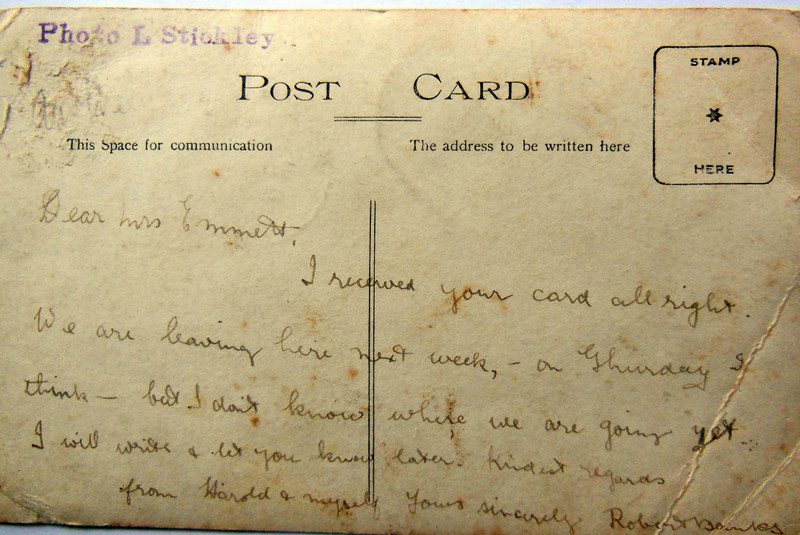 Photo L Stickley
POST CARD
STAMP
HERE
This Space for communication
The address to be written here
Dear Mrs Emmett,
I received your card all right.
We are leaving here next week, - on Thursday I
think - but I don't know where we are going yet.
I will write & let you know later. Kindest regards
from Harold & myself Yours sincerely Robert Banks